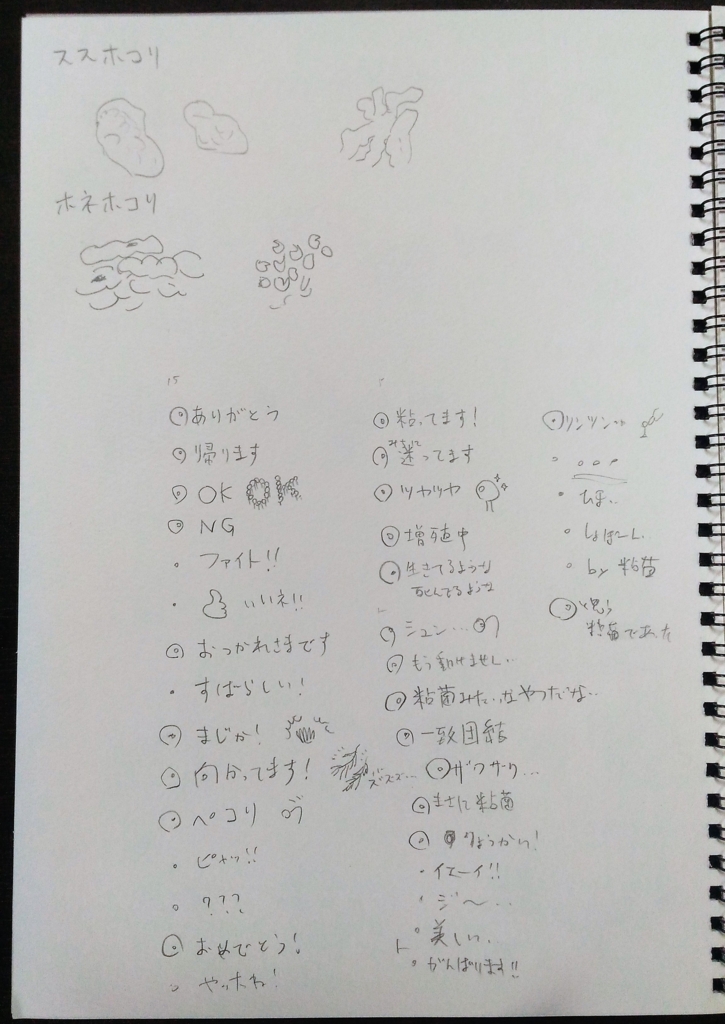 ススホコリ
ホネホコリ
15
ありがとう
帰ります
OK OK
NG
ファイト!!
いいネ!!
おつかれさまです
すばらしい!
まじか!
向かってます! ズズズ...
ペコリ
ピャッ!!
???
おめでとう!
やったね!
粘ってます!
みちに
迷ってます
ツヤツヤ
増殖中
生きてるような
死んでるような
シュン...
もう動けません..
粘菌みたいなやつだな..
一致団結
ザワザワ...
まさに粘菌
りょうかい!
イエーイ!!
ジ〜...
美しい.
がんばります!!
ツンツン
...
ひま..
しょぼーん.
by 粘菌
と思う
粘菌であった